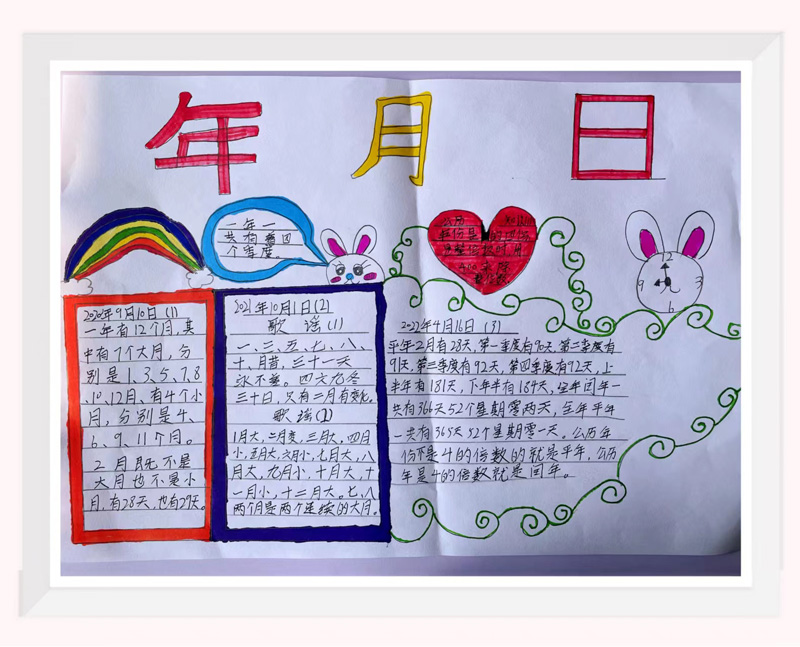 年 月 日
一年一
共有着四
个季度
公历
年份是
的四倍
12
3
6
9
2020年9月10日 (1)
一年有12个月,其
中有7个大月,分
别是1、3、5、7、8
、10、12月、有4个小
月,分别是4、
6、9、11个月。
2月既不是
大月也不是小
月,有28天,也有29天。
2021年10月1日(2)
歌 谣(1)
一、三、五、七、八、
十、月昔,三十一天
永不差。四六九冬
三十日,只有二月有变化,
歌 谣(2)
1月大,二月变,三月大,四月
小,五月大,六月小,七月大,八
月大,九月小,十月大,十
一月小,十二月大。七、八
两个月是两个连续的大月。
2022年4月16日 (3)
平年2月有28天,第一季度有90天,第二季度有
91天,第三季度有92天,第四季度有92天,上
半年有181天,下半年有184天,全年闰年一
共有366天52个星期零两天,全年平年
一共有365天52个星期零一天。公历年
份不是4的倍数的就是平年,公历
年是4的倍数就是闰年。